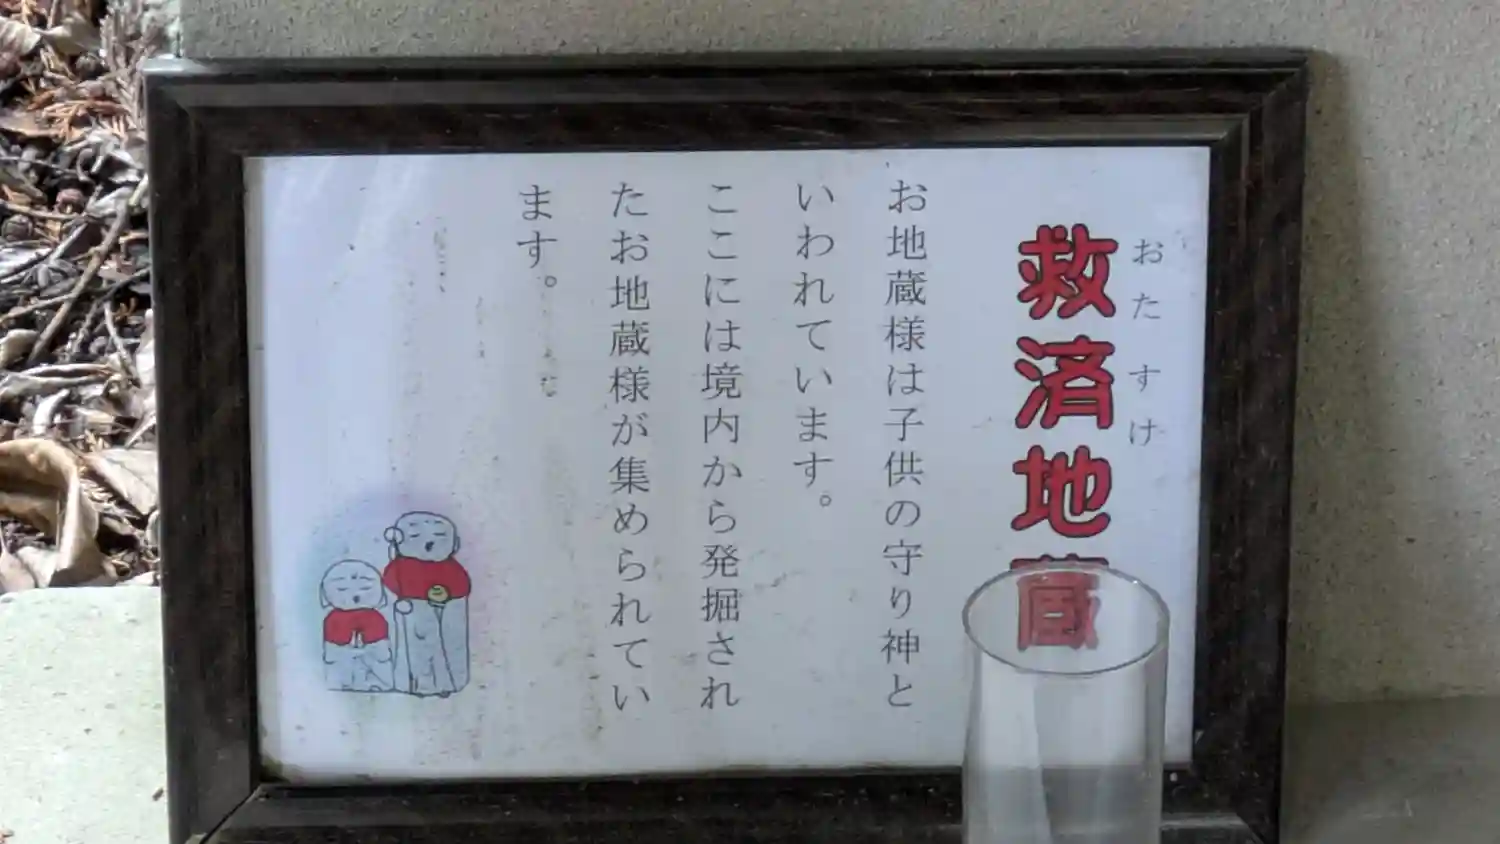 救済地蔵
おたすけ
お地蔵様は子供の守り神と
いわれています。
ここには境内から発掘され
たお地蔵様が集められてい
ます。